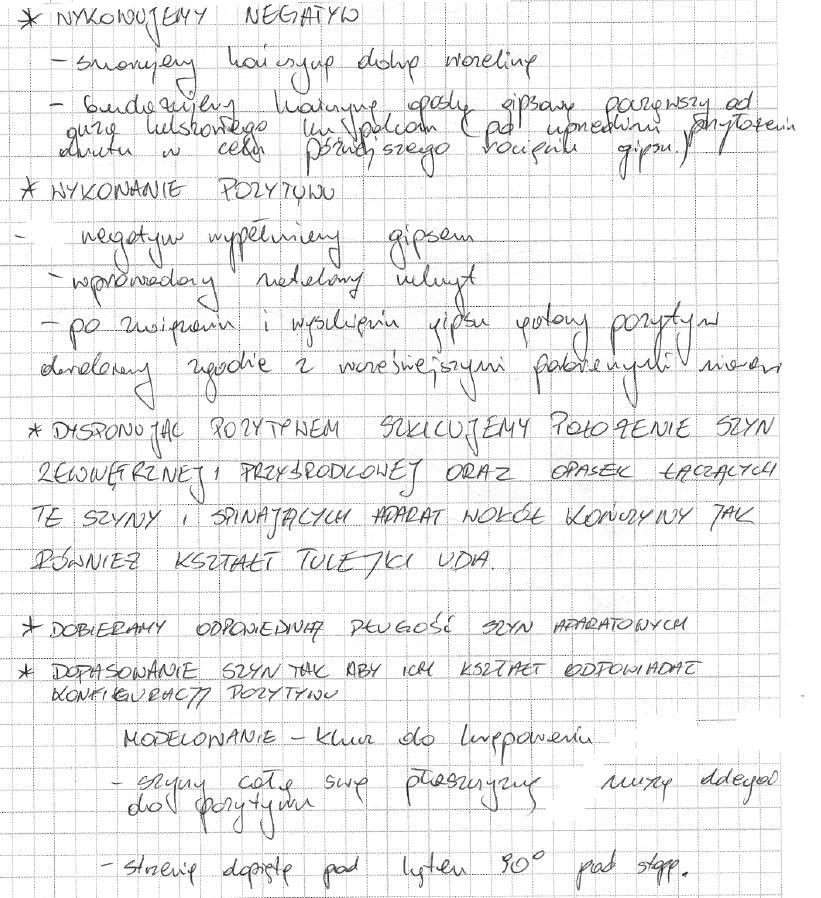 * WYKONUJEMY NEGATYW
- smarujemy kończynę dolną wazeliną
- bandażujemy kończynę opaską gipsową począwszy od
guza kulszowego ku palcom (po uprzednim przyłożeniu
drutu w celu późniejszego rozcięcia gipsu)
* WYKONANIE POZYTYWU
- negatyw wypełniamy gipsem
- wprowadzamy metalowy uchwyt
- po związaniu i wyschnięciu gipsu gotowy pozytyw
zgodnie z wcześniejszymi pobranymi
* DYSPONUJĄC POZYTYWEM SZKICUJEMY POŁOŻENIE SZYN
ZEWNĘTRZNEJ I PRZYŚRODKOWEJ ORAZ OPASEK ŁĄCZĄCYCH
TE SZYNY I SPINAJĄCYCH APARAT WOKÓŁ KOŃCZYNY JAK
RÓWNIEŻ KSZTAŁT TULEJKI UDA.
* DOBIERAMY ODPOWIEDNIĄ DŁUGOŚĆ SZYN APARATOWYCH
* DOPASOWANIE SZYN TAK ABY ICH KSZTAŁT ODPOWIADAŁ
KONFIGURACJI POZYTYWU
MODELOWANIE - klucz do krępowania
- szyny całą swą płaszczyzną muszą
do pozytywu
- pod kątem 90° pod stopą.